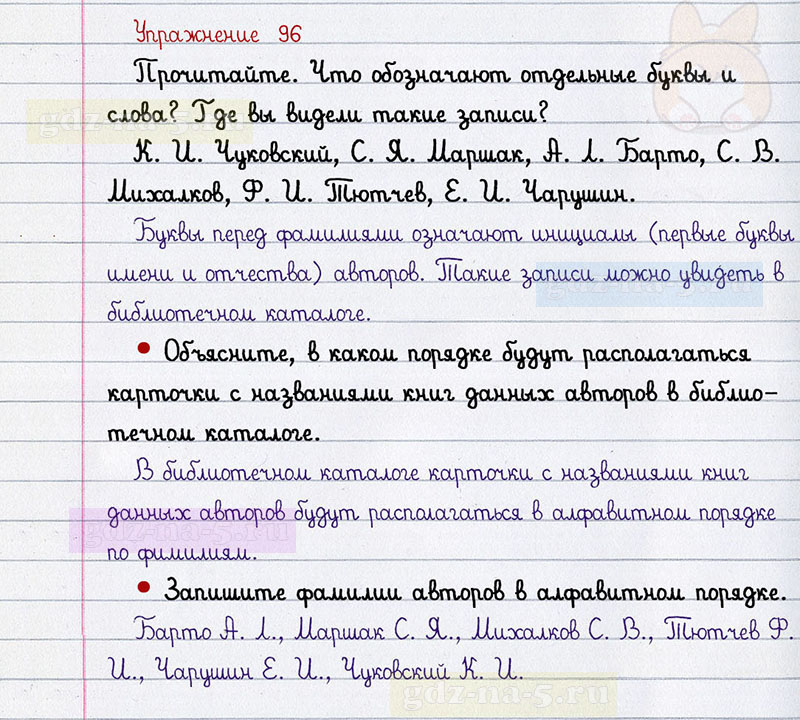 Упражнение 96
Прочитайте. Что обозначают отдельные буквы и
слова? Где вы видели такие записи?
К. И. Чуковский, С. Я. Маршак, А. Л. Барто, С. В.
Михалков, Ф. И. Тютчев, Е. И. Чарушин.
Буквы перед фамилиями означают инициалы (первые буквы
имени и отчества) авторов. Такие записи можно увидеть в
библиотечном каталоге.
• Объясните, в каком порядке будут располагаться
карточки с названиями книг данных авторов в библио-
течном каталоге.
В библиотечном каталоге карточки с названиями книг
данных авторов будут располагаться в алфавитном порядке
по фимилиям.
• Запишите фамилии авторов в алфавитном порядке.
Барто А. Л., Маршак С. Я., Михалков С. В., Тютчев Ф.
И., Чарушин Е. И., Чуковский К. И.
gdz-na-5.ru
gdz-na-5.ru
gdz-na-5.ru
gdz-na-5.ru